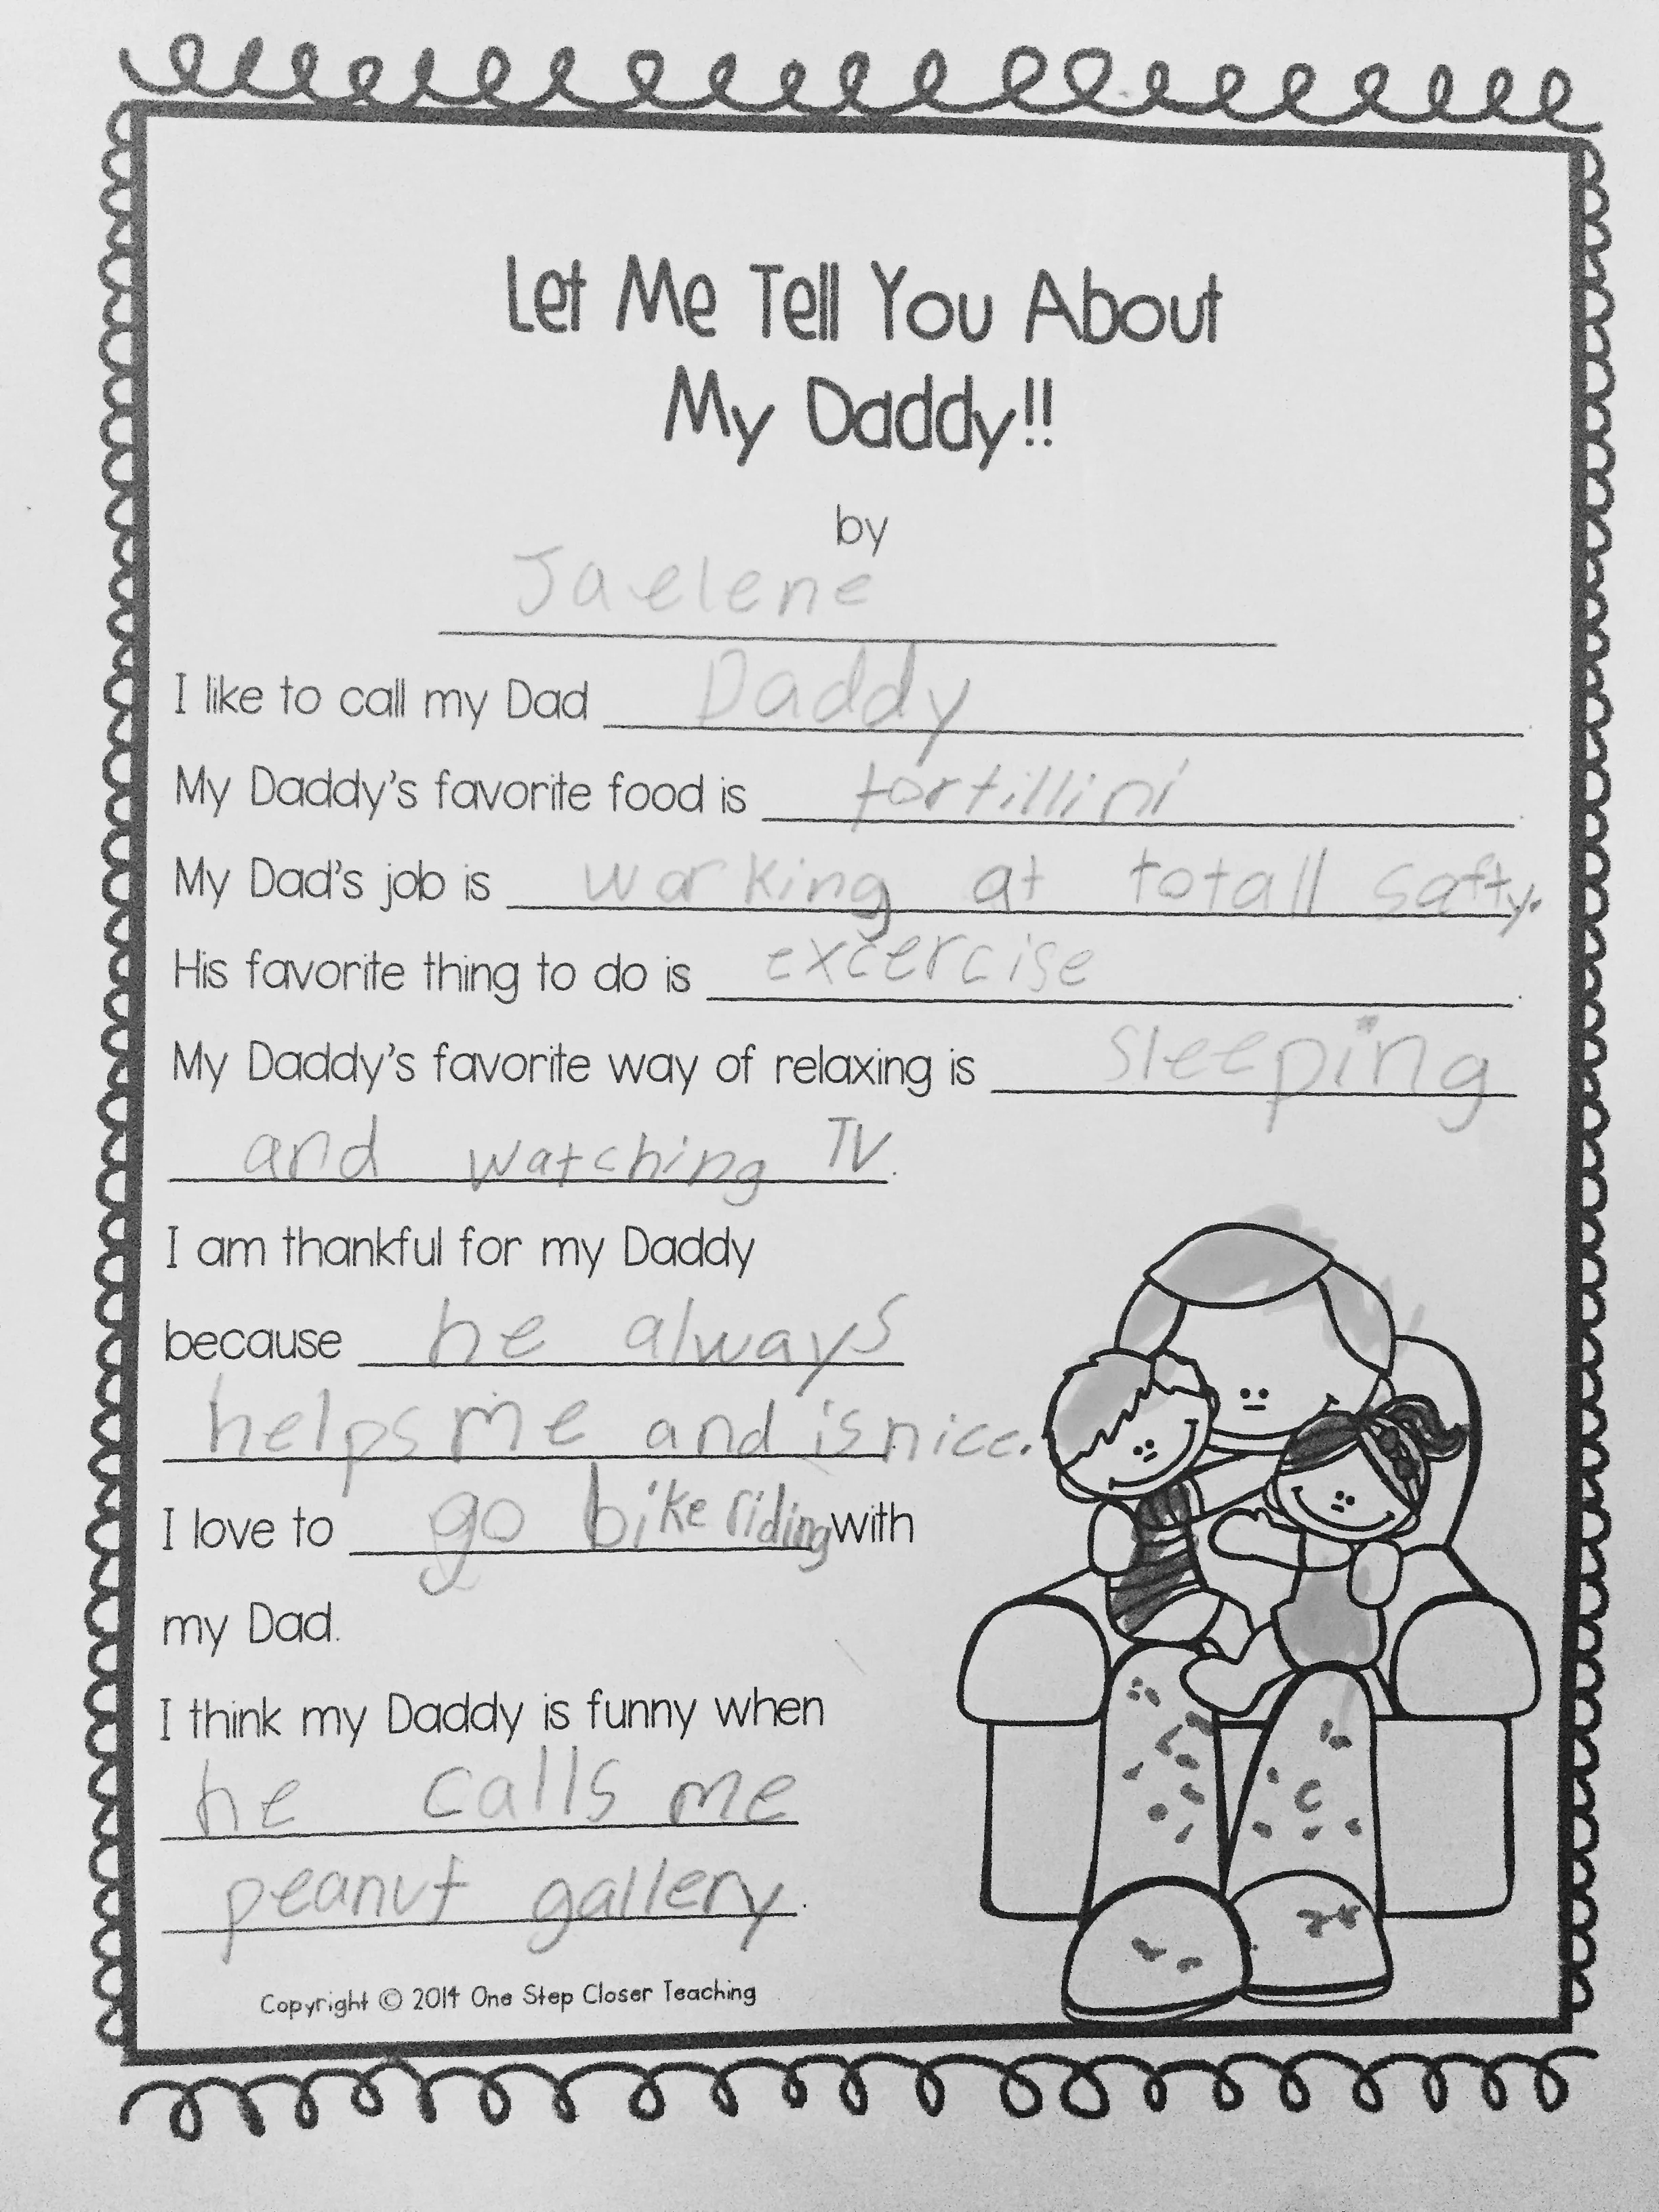 Let Me Tell You About
My Daddy!!
by
Jaelene
I like to call my Dad Daddy.
My Daddy's favorite food is tortillini.
My Dad's job is working at totall safty.
His favorite thing to do is excercise.
My Daddy's favorite way of relaxing is sleeping
and watching TV.
I am thankful for my Daddy
because he always
helps me and is nice.
I love to go bike riding with
my Dad.
I think my Daddy is funny when
he calls me
peanut gallery.
Copyright © 2014 One Step Closer Teaching